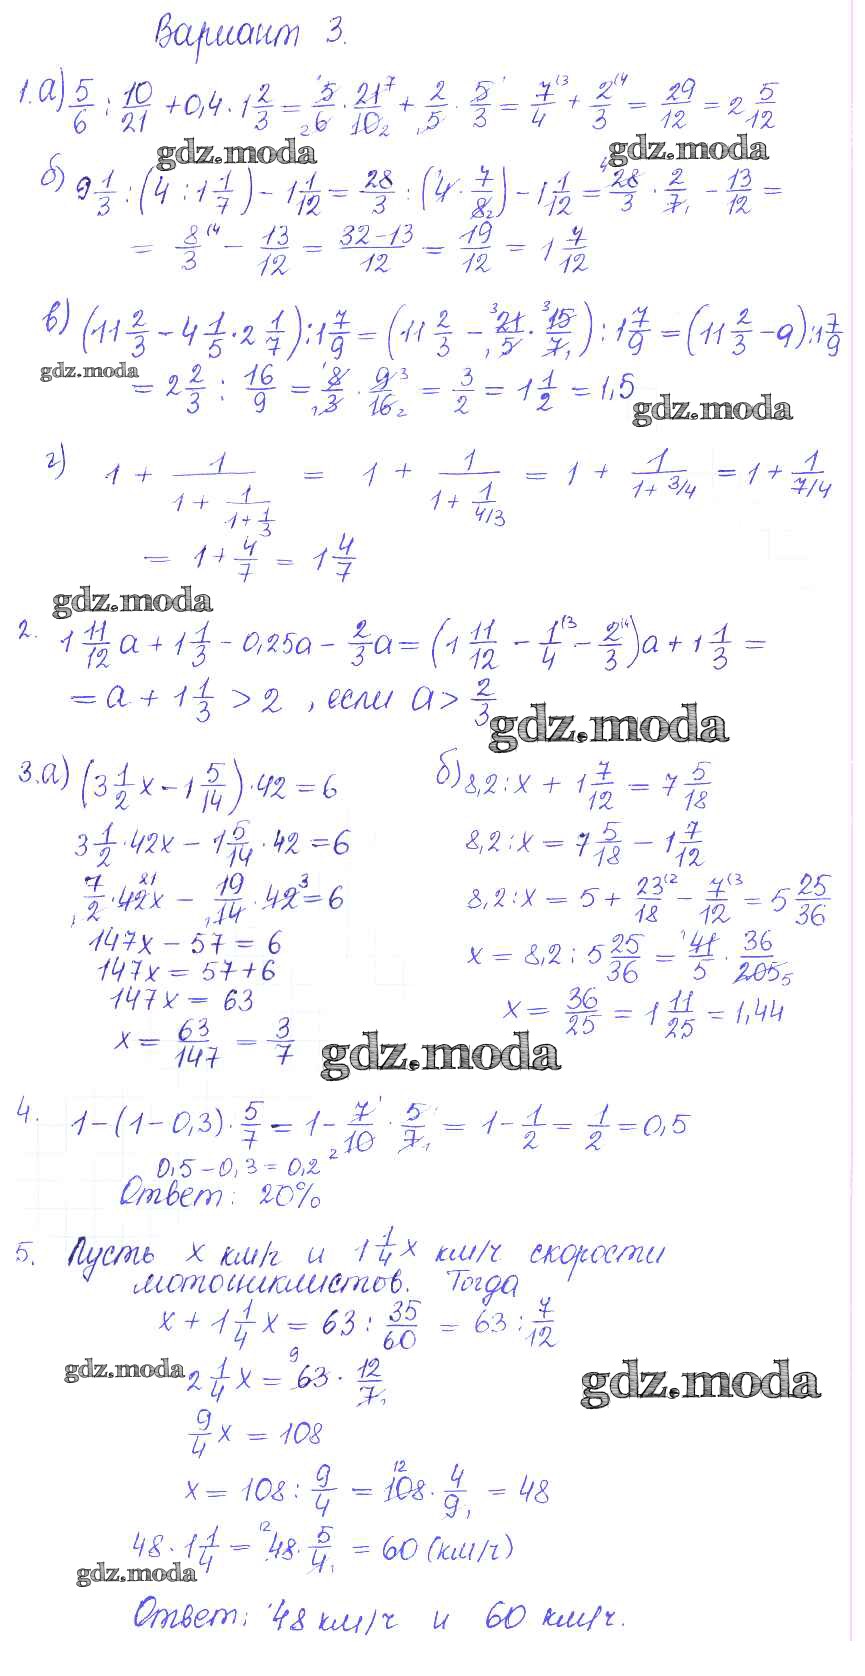 Вариант 3.
1. а) 5/6 : 10/21 + 0,4 · 1 2/3 = 5/6 · 21/10 + 2/5 · 5/3 = 7/4 + 2/3 = 29/12 = 2 5/12
gdz.moda gdz.moda
б) 9 1/3 : (4 : 1 1/7) - 1 1/12 = 28/3 : (4 · 7/8) - 1 1/12 = 28/3 · 2/7 - 13/12 =
= 8/3 - 13/12 = 32-13/12 = 19/12 = 1 7/12
в) (11 2/3 - 4 1/5 · 2 1/7) : 1 7/9 = (11 2/3 - 21/5 · 15/7) : 1 7/9 = (11 2/3 - 9) : 1 7/9
gdz.moda
= 2 2/3 : 16/9 = 8/3 · 9/16 = 3/2 = 1 1/2 = 1,5
gdz.moda
г) 1 + 1/(1 + 1/(1 + 1/3)) = 1 + 1/(1 + 1/(4/3)) = 1 + 1/(1 + 3/4) = 1 + 1/(7/4)
= 1 + 4/7 = 1 4/7
gdz.moda
2. 1 11/12 a + 1 1/3 - 0,25a - 2/3 a = (1 11/12 - 1/4 - 2/3)a + 1 1/3 =
= a + 1 1/3 > 2 , если a > 2/3
gdz.moda
3. а) (3 1/2 x - 1 5/14) · 42 = 6
3 1/2 · 42x - 1 5/14 · 42 = 6
7/2 · 42x - 19/14 · 42 = 6
147x - 57 = 6
147x = 57 + 6
147x = 63
x = 63/147 = 3/7
б) 8,2 : x + 1 7/12 = 7 5/18
8,2 : x = 7 5/18 - 1 7/12
8,2 : x = 5 + 23/18 - 7/12 = 5 25/36
x = 8,2 : 5 25/36 = 41/5 · 36/205
x = 36/25 = 1 11/25 = 1,44
gdz.moda
4. 1 - (1 - 0,3) · 5/7 = 1 - 7/10 · 5/7 = 1 - 1/2 = 1/2 = 0,5
0,5 - 0,3 = 0,2
Ответ: 20%
5. Пусть x км/ч и 1 1/4 x км/ч скорости
мотоциклистов. Тогда
x + 1 1/4 x = 63 : 35/60 = 63 : 7/12
gdz.moda
2 1/4 x = 63 · 12/7
gdz.moda
9/4 x = 108
x = 108 : 9/4 = 108 · 4/9 = 48
48 · 1 1/4 = 48 · 5/4 = 60 (км/ч)
gdz.moda
Ответ: 48 км/ч и 60 км/ч.